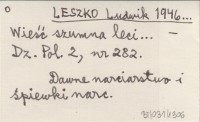 LESZKO Ludwik 1946...
Wieść szumna leci... –
Dz. Pol. 2, nr 282.
Dawne narciarstwo i
śpiewki narc.